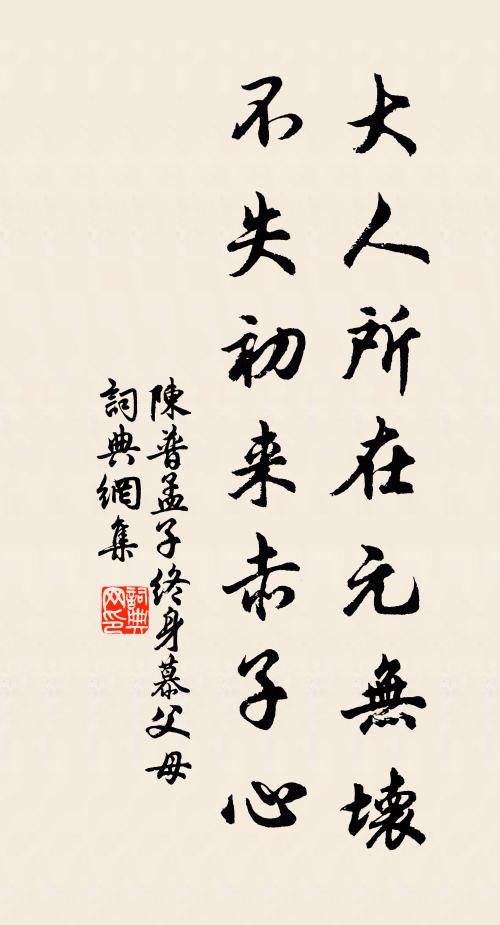 大人所在元無壞
不失初来赤子心
陳普孟子终身慕父母
詞典網集
詞典网印